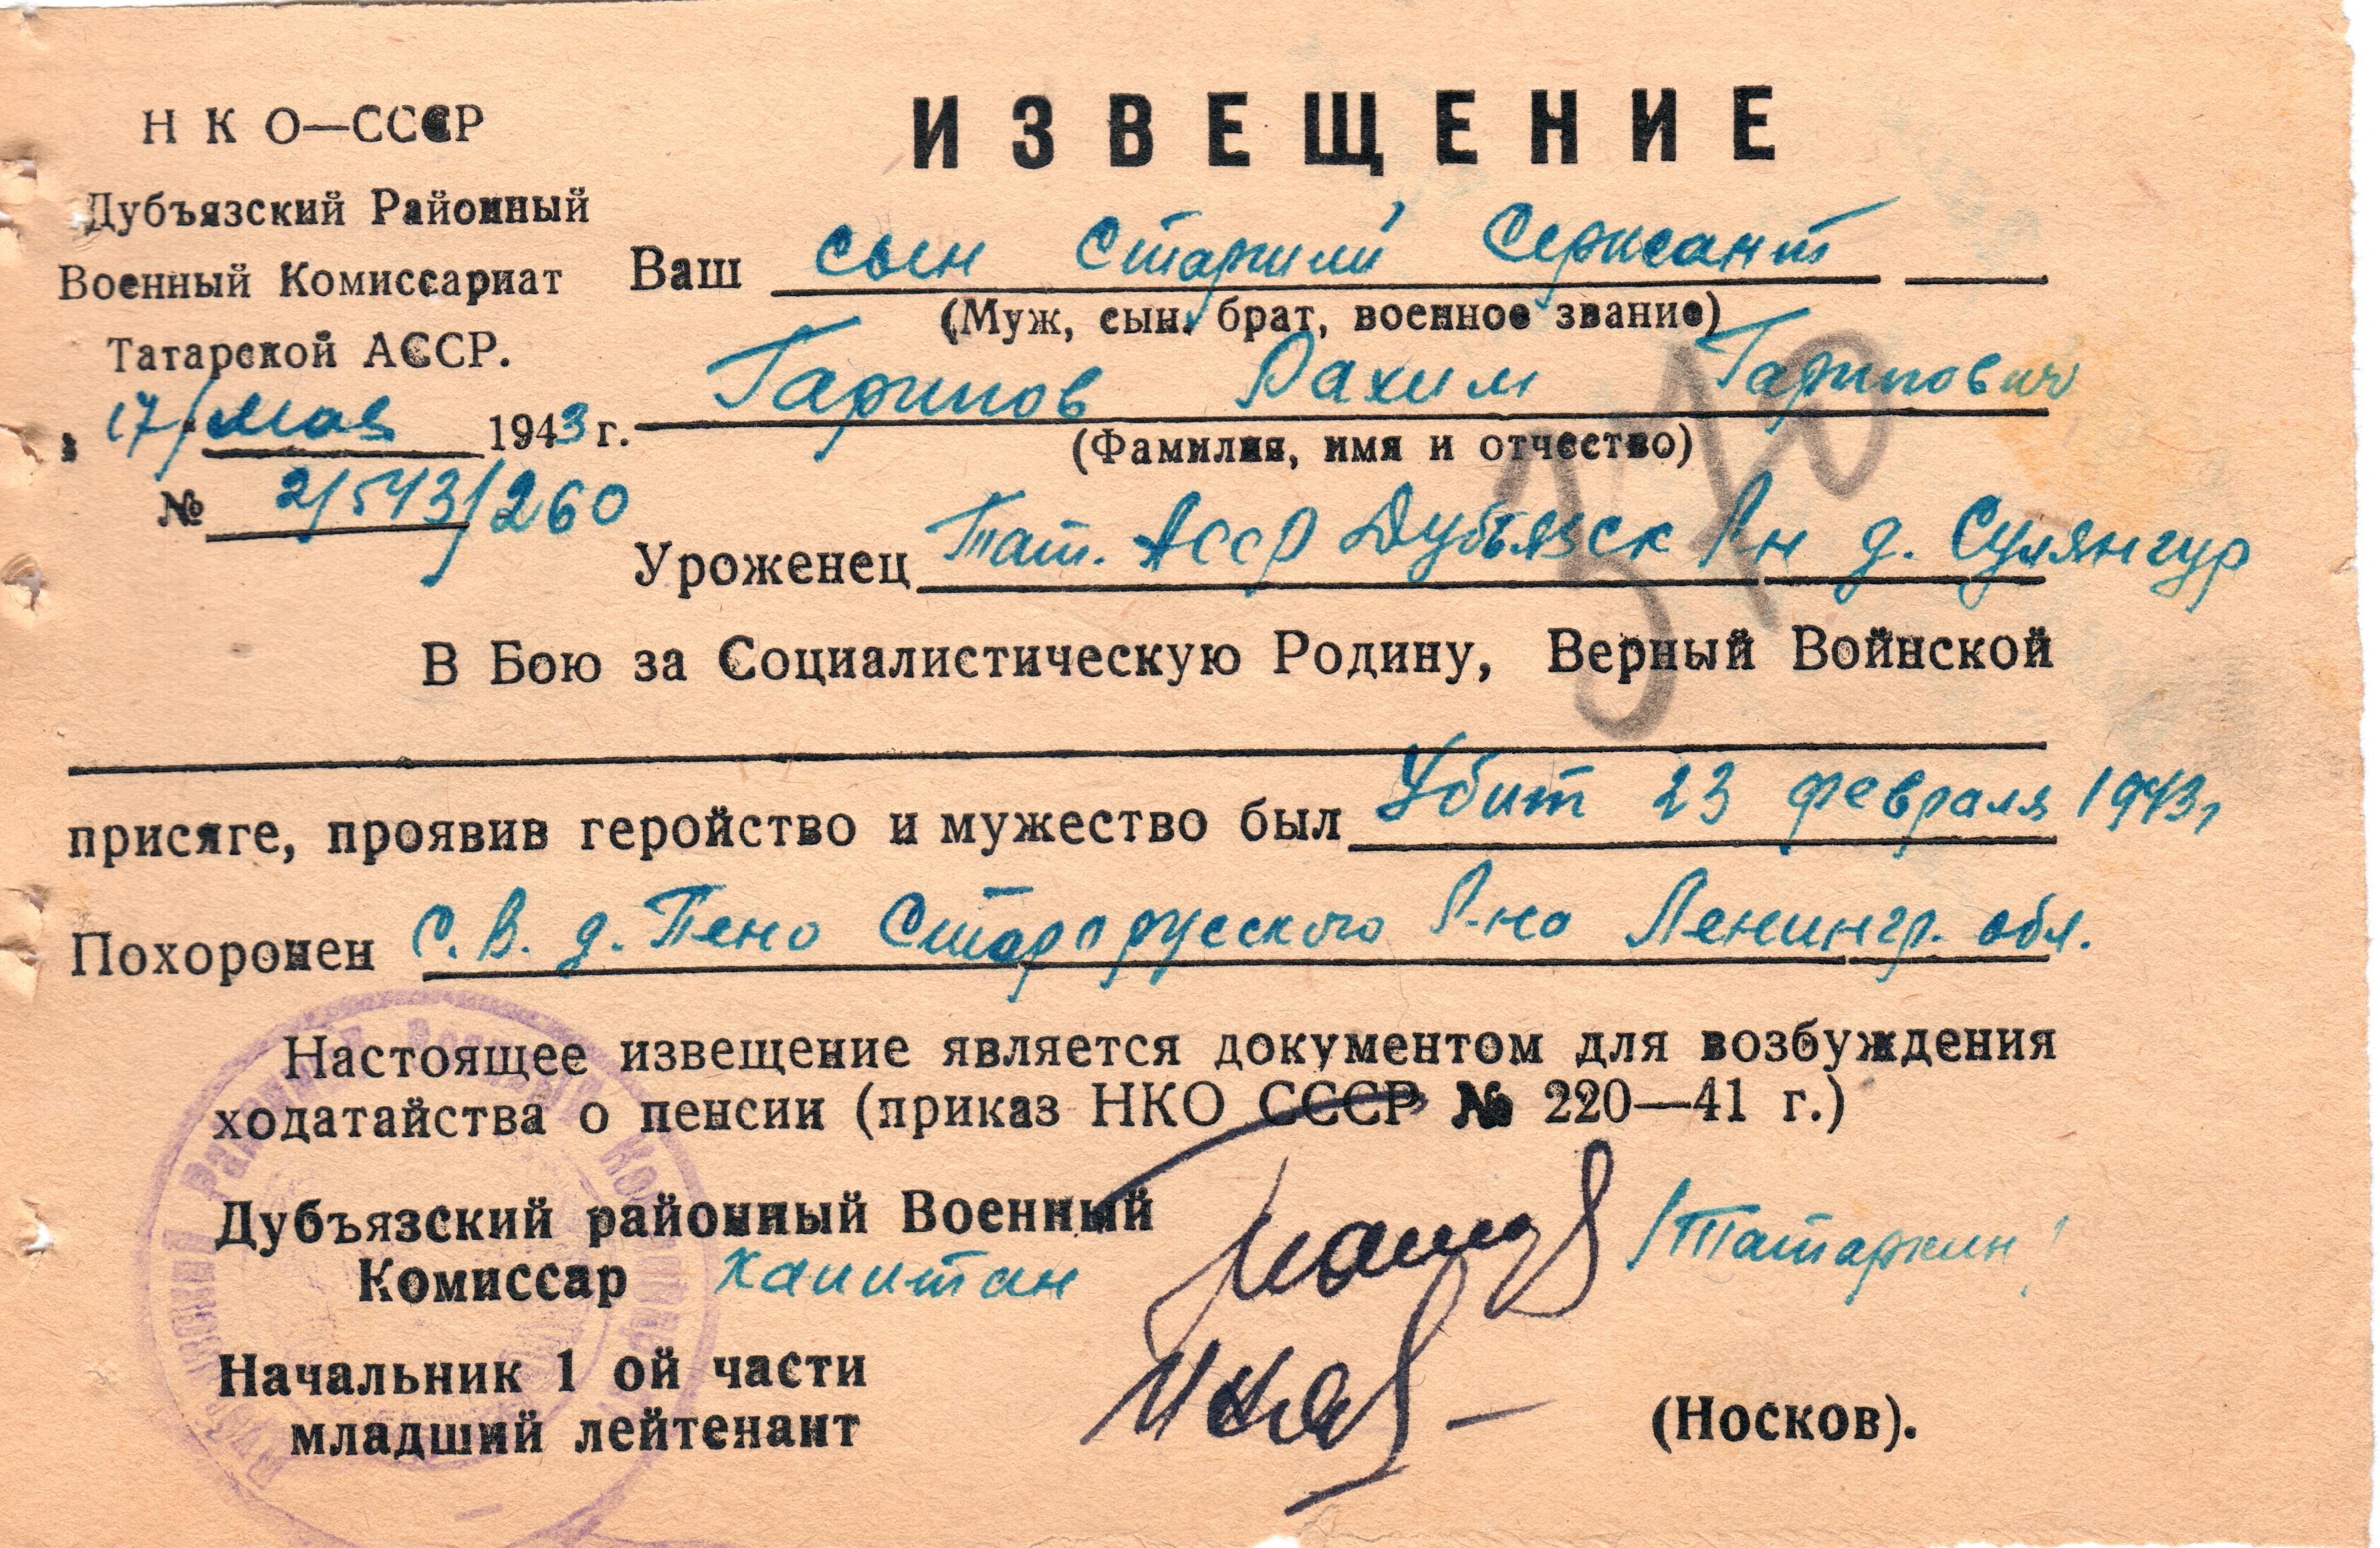 Н К О—СССР
Дубъязский Районный
Военный Комиссариат
Татарской АССР.
17/ мая 1943 г.
№ 2/543/260
ИЗВЕЩЕНИЕ
Ваш сын Старший Сержант
(Муж, сын. брат, военное звание)
Гарипов Рахим Гарипович
(Фамилия, имя и отчество)
Уроженец Тат. АССР Дубъязск Рн д. Сулянгур
В Бою за Социалистическую Родину, Верный Войнской
присяге, проявив геройство и мужество был Убит 23 февраля 1943г
Похоронен С. В. д. Пено Старорусского Р-на Ленингр. обл.
Настоящее извещение является документом для возбуждения
ходатайства о пенсии (приказ НКО СССР № 220—41 г.)
Дубъязский районный Военный
Комиссар Капитан /Татаркин/
Начальник 1 ой части
младший лейтенант (Носков).